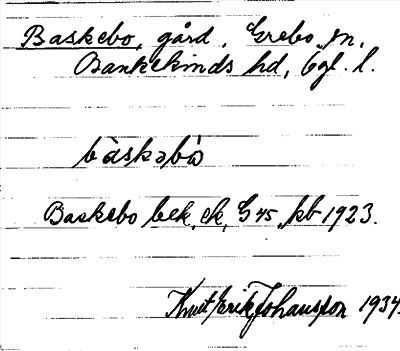 Baskebo, gård, Grebo sn,
Bankekinds hd, Ögl. l.
bàskəbò
Baskebo bek. ek. G 45, kb 1923.
Knut Erik Johansson 1934.